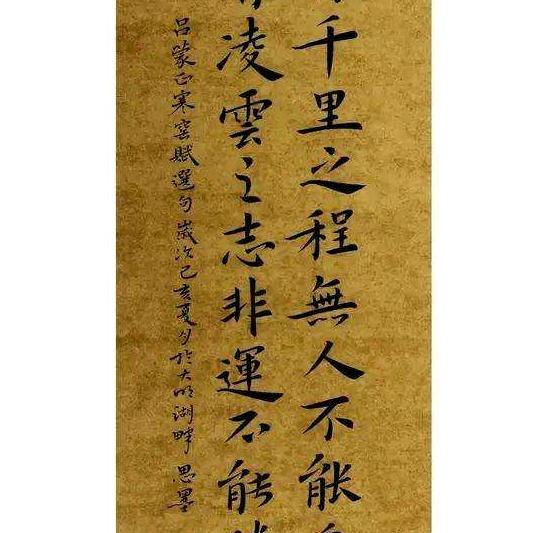 千里之程無人不能
凌雲之志非運不能
吕蒙正寒窑賦選句歲次己亥夏月於大明湖畔思墨